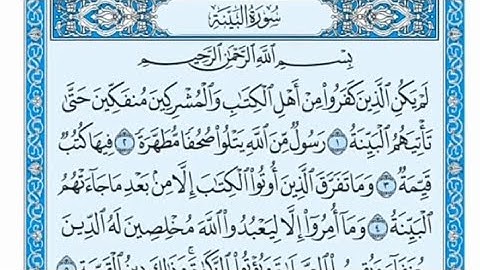 سُورَةُ البَيِّنَةِ
بِسْمِ اللَّهِ الرَّحْمَٰنِ الرَّحِيمِ
لَمْ يَكُنِ الَّذِينَ كَفَرُوا مِنْ أَهْلِ الْكِتَابِ وَالْمُشْرِكِينَ مُنفَكِّينَ حَتَّىٰ
تَأْتِيَهُمُ الْبَيِّنَةُ ١ رَسُولٌ مِّنَ اللَّهِ يَتْلُوا صُحُفًا مُّطَهَّرَةً ٢ فِيهَا كُتُبٌ
قَيِّمَةٌ ٣ وَمَا تَفَرَّقَ الَّذِينَ أُوتُوا الْكِتَابَ إِلَّا مِن بَعْدِ مَا جَاءَتْهُمُ
الْبَيِّنَةُ ٤ وَمَا أُمِرُوا إِلَّا لِيَعْبُدُوا اللَّهَ مُخْلِصِينَ لَهُ الدِّينَ